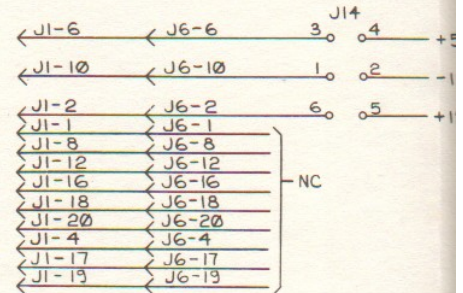 J14
J1-6 J6-6 3 4 +5
J1-10 J6-10 1 2 -1
J1-2 J6-2 6 5 +1
J1-1 J6-1
J1-8 J6-8
J1-12 J6-12
J1-16 J6-16 NC
J1-18 J6-18
J1-20 J6-20
J1-4 J6-4
J1-17 J6-17
J1-19 J6-19